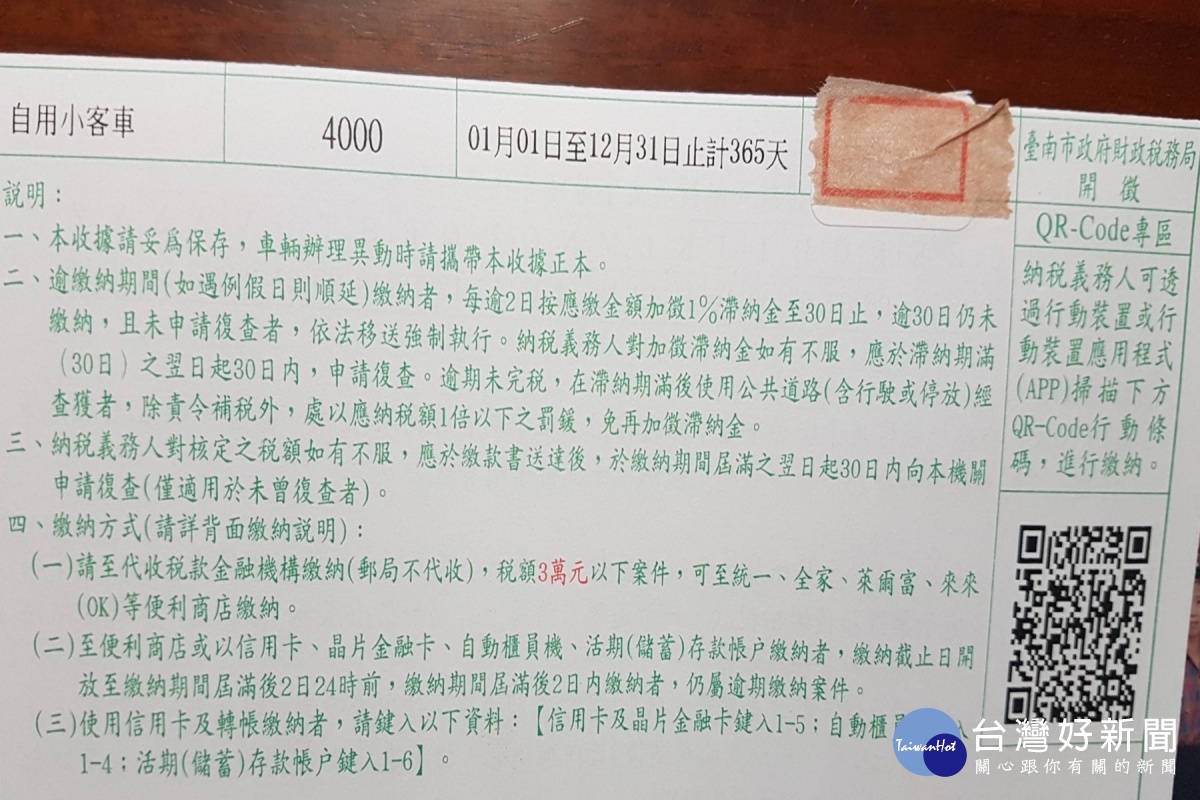 自用小客車
4000
01月01日至12月31日止計365天
臺南市政府財政稅務局
開 徵
QR-Code專區
納稅義務人可透
過行動裝置或行
動裝置應用程式
(APP)掃描下方
QR-Code行動條
碼，進行繳納。
說明：
一、本收據請妥為保存，車輛辦理異動時請攜帶本收據正本。
二、逾繳納期間(如遇例假日則順延)繳納者，每逾2日按應繳金額加徵1%滯納金至30日止，逾30日仍未
繳納，且未申請復查者，依法移送強制執行。納稅義務人對加徵滯納金如有不服，應於滯納期滿
(30日)之翌日起30日內，申請復查。逾期未完稅，在滯納期滿後使用公共道路(含行駛或停放)經
查獲者，除責令補稅外，處以應納稅額1倍以下之罰鍰，免再加徵滯納金。
三、納稅義務人對核定之稅額如有不服，應於繳款書送達後，於繳納期間屆滿之翌日起30日內向本機關
申請復查(僅適用於未曾復查者)。
四、繳納方式(請詳背面繳納說明)：
(一)請至代收稅款金融機構繳納(郵局不代收)，稅額3萬元以下案件，可至統一、全家、萊爾富、來來
(OK)等便利商店繳納。
(二)至便利商店或以信用卡、晶片金融卡、自動櫃員機、活期(儲蓄)存款帳戶繳納者，繳納截止日開
放至繳納期間屆滿後2日24時前，繳納期間屆滿後2日內繳納者，仍屬逾期繳納案件。
(三)使用信用卡及轉帳繳納者，請鍵入以下資料：【信用卡及晶片金融卡鍵入1-5；自動櫃員 入
1-4；活期(儲蓄)存款帳戶鍵入1-6】。
TaiwanHot
台灣好新聞
關心跟你有關的新聞